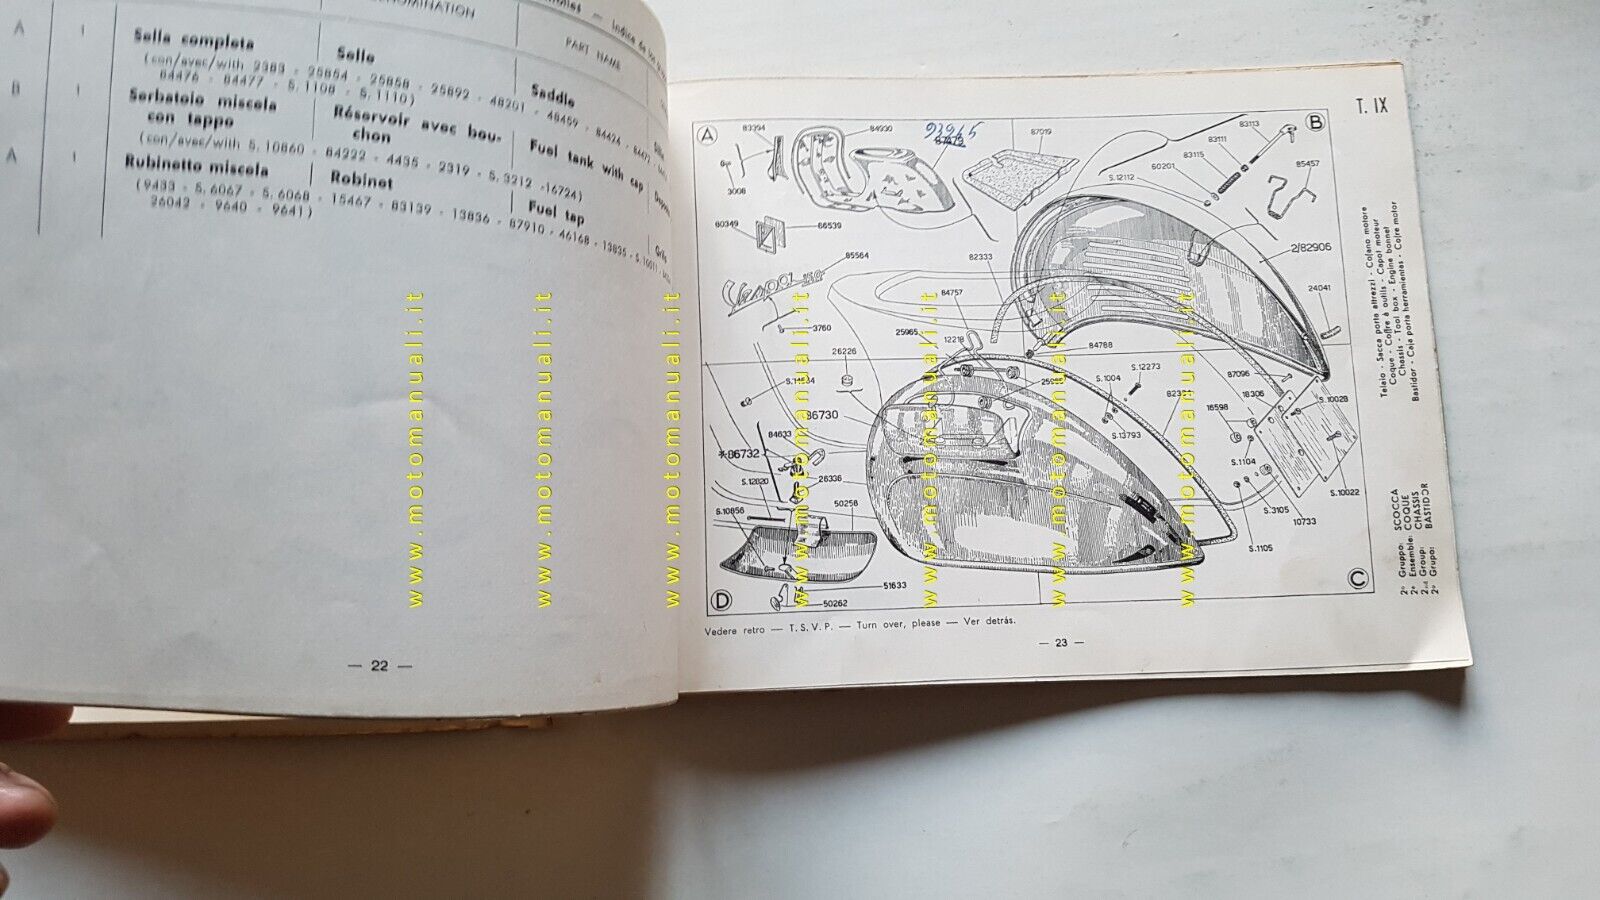 DENOMINATION
Indice de
PART NAME
A 1 Sella completa Selle Saddle
(con/avec/with 2383 - 25854 - 25858 - 25892 - 48201 - 48459 - 84424 - 84472
84476 - 84477 - S. 1108 - S. 1110)
B 1 Serbatoio miscela Réservoir avec bou- Fuel tank with cap
con tappo chon
(con/avec/with S. 10860 - 84222 - 4435 - 2319 - S. 3212 - 16724)
A 1 Rubinetto miscela Robinet Fuel tap
(9433 - S. 6067 - S. 6068 - 15467 - 83139 - 13836 - 87910 - 46168 - 13835 - S. 10011
26042 - 9640 - 9641)
— 22 —
T. IX
A
B
83394
84930
93965
87019
83113
83111
83115
60201
S.12112
85457
3008
80349
86539
85564
Vespa 150
82333
2/82906
84757
24041
3760
25965
12218
84788
26226
S.12273
S.1004
87096
18306
S.10028
16598
86730
84633
S.13793
*86732
S.1104
26336
S.12820
50258
S.10022
S.10856
S.3105
10733
S.1105
51633
50262
D
C
Telaio - Sacca porta attrezzi - Cofano motore
Coque - Coffre à outils - Capot moteur
Chassis - Tool box - Engine bonnet
Bastidor - Caja porta herramientas - Cofre motor
2º Gruppo: SCOCCA
2e Ensemble: COQUE
2nd Group: CHASSIS
2º Grupo: BASTIDOR
Vedere retro — T. S. V. P. — Turn over, please — Ver detrás.
— 23 —
www.motomanuali.it
www.motomanuali.it
www.motomanuali.it
www.motomanuali.it
www.motomanuali.it
www.motomanuali.it
www.motomanuali.it